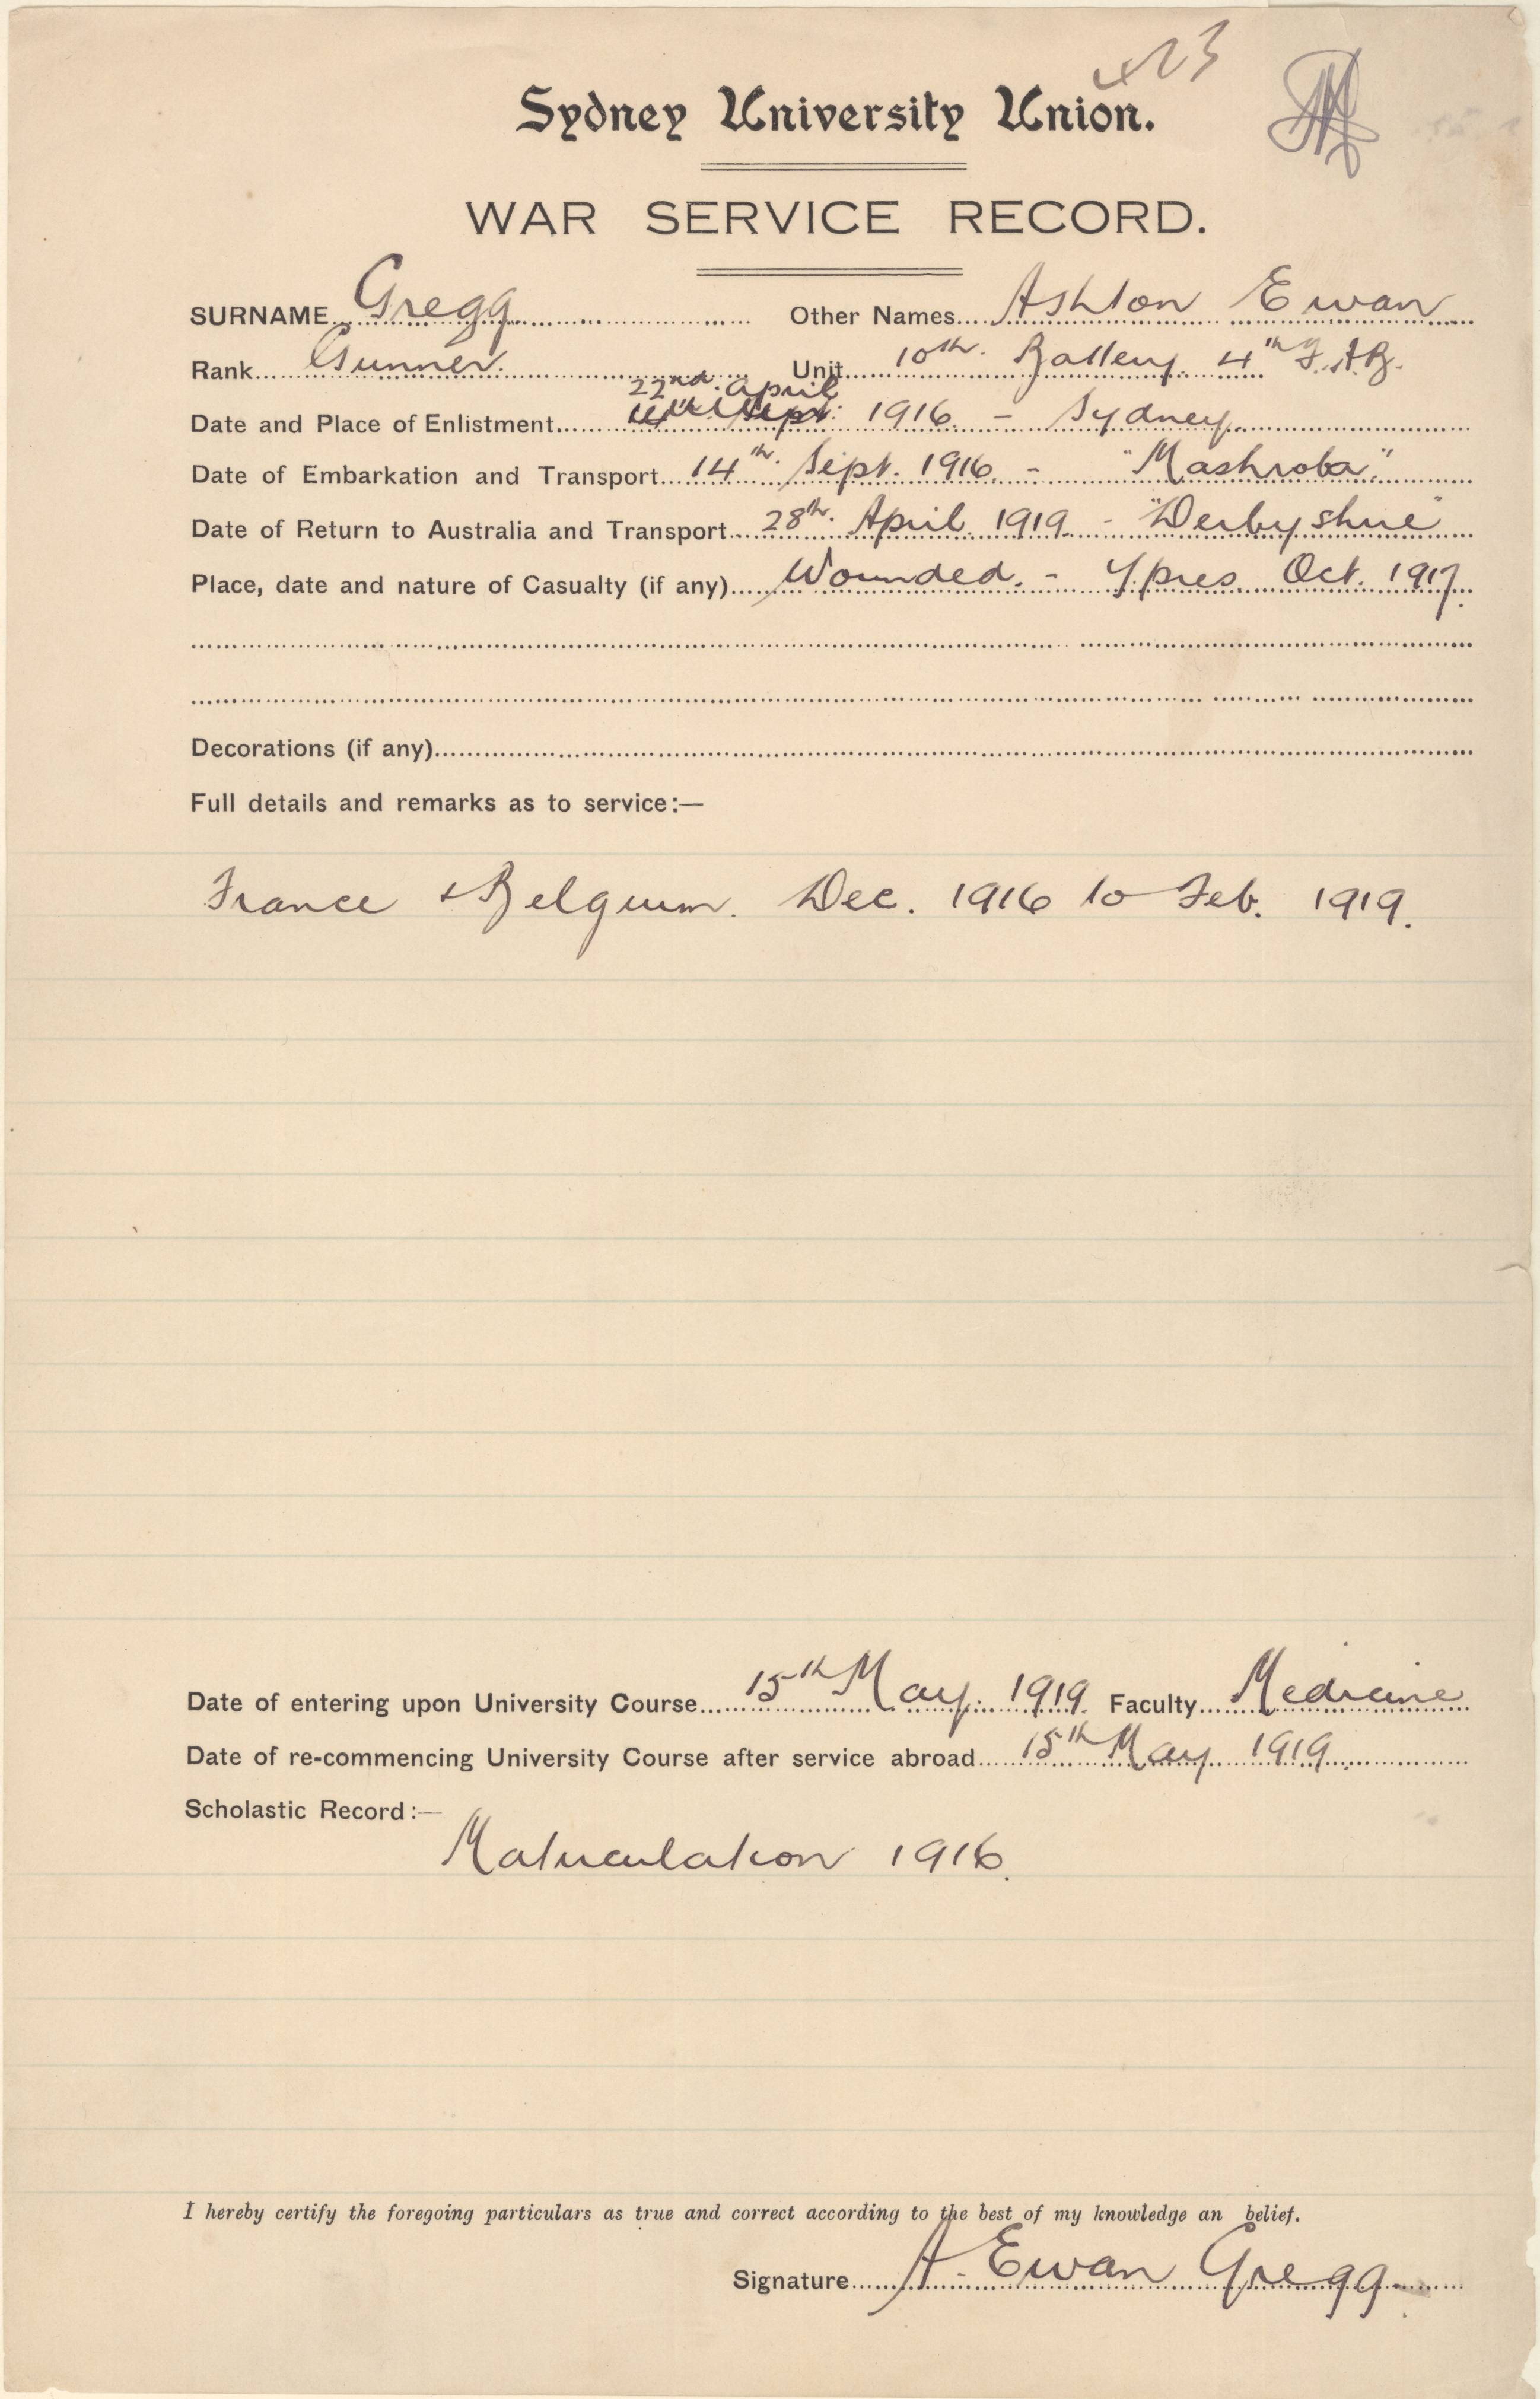 Sydney University Union.
WAR SERVICE RECORD.
SURNAME Gregg Other Names Ashton Ewan
Rank Gunner. Unit 10th. Battery. 4th F.A.B.
22nd. April
Date and Place of Enlistment Sept. 1916 - Sydney
Date of Embarkation and Transport 14th. Sept. 1916 - "Mashroba"
Date of Return to Australia and Transport 28th. April 1919 - "Derbyshire"
Place, date and nature of Casualty (if any) Wounded. - Ypres Oct. 1917.
Decorations (if any)
Full details and remarks as to service:—
France & Belgium. Dec. 1916 to Feb. 1919.
Date of entering upon University Course 15th May 1919 Faculty Medicine
Date of re-commencing University Course after service abroad 15th May 1919
Scholastic Record:—
Matriculation 1916.
I hereby certify the foregoing particulars as true and correct according to the best of my knowledge an belief.
Signature A. Ewan Gregg